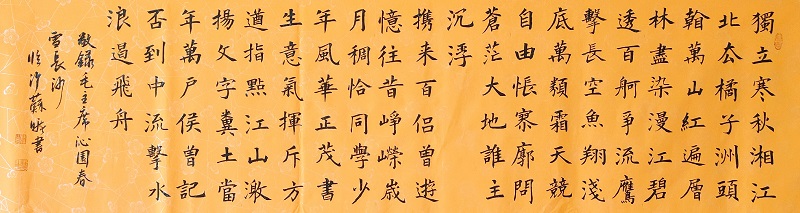 獨立寒秋湘江
北厺橘子洲頭
翰萬山紅遍層
林盡染漫江碧
透百舸爭流鷹
擊長空魚翔淺
底萬類霜天競
自由悵寥廓問
蒼茫大地誰主
沉浮
携来百侣曾遊
憶往昔崢嶸歲
月稠恰同學少
年風華正茂書
生意氣揮斥方
遒指點江山激
揚文字糞土當
年萬戶侯曾記
否到中流擊水
浪遏飛舟
敬錄毛主席沁園春
雪長沙
临沂蘇書